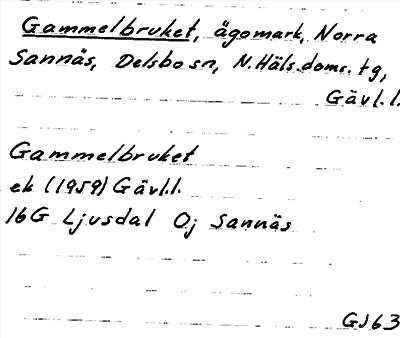 Gammelbruket, ägomark, Norra
Sannäs, Delsbo sn, N. Häls. doms. tg,
Gävl.l.
Gammelbruket
ek (1959) Gävl.l.
16G Ljusdal 0j Sannäs
GJ63